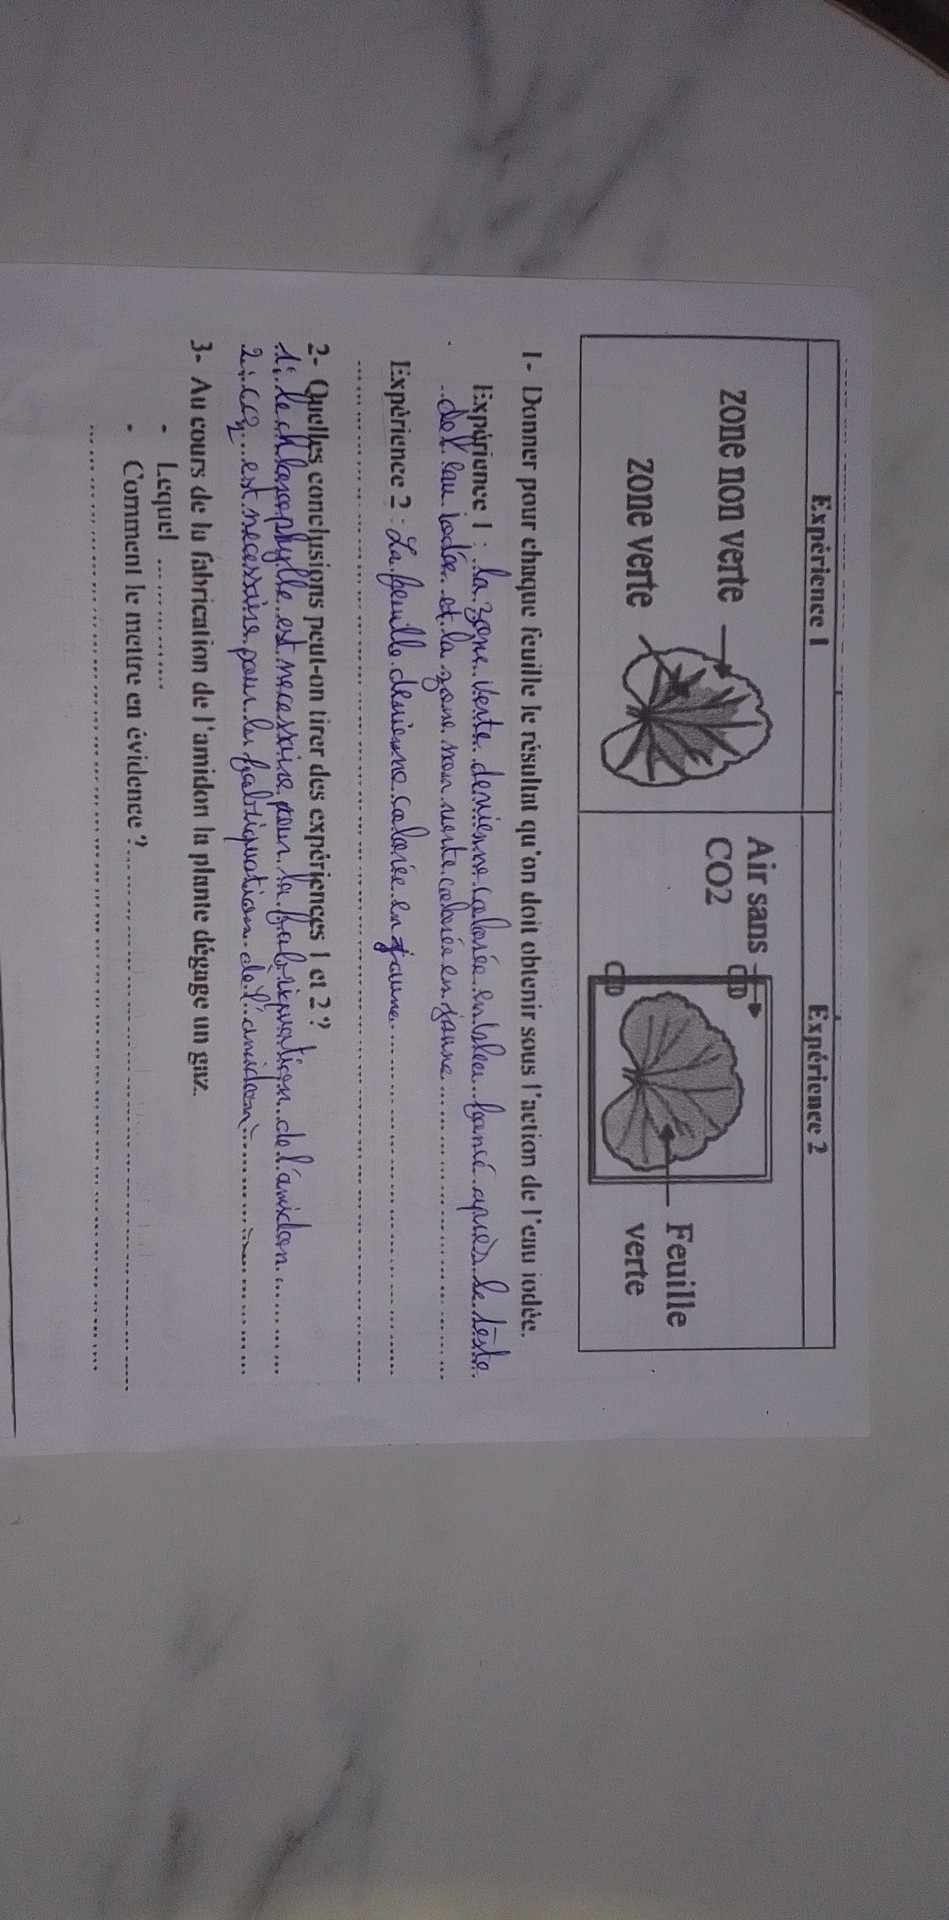 Expérience 1
Expérience 2
zone non verte
zone verte
Air sans
CO2
Feuille
verte
1- Donner pour chaque feuille le résultat qu'on doit obtenir sous l'action de l'eau iodée.
Expérience 1 : la zone verte devienne colorée en bleu foncé après le teste
de l'eau iodée et la zone non verte colorée en jaune
Expérience 2 : La feuille devienne colorée en jaune
2- Quelles conclusions peut-on tirer des expériences 1 et 2 ?
1: le chloroophylle est necessaire pour la fabriquation de l'amidon
2: CO2 est necessaire pour la fabriquation de l'amidon
3- Au cours de la fabrication de l'amidon la plante dégage un gaz.
- Lequel ............
- Comment le mettre en évidence ?